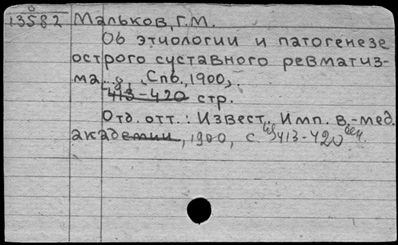 13582 Мальков, Г.М.
Об этиологии и патогенезе
острого суставного ревматиз-
ма. Спб., 1900,
413-420 стр.
Отд. отт.: Извест. Имп. в.-мед.
академии, 1900, с. 413-420